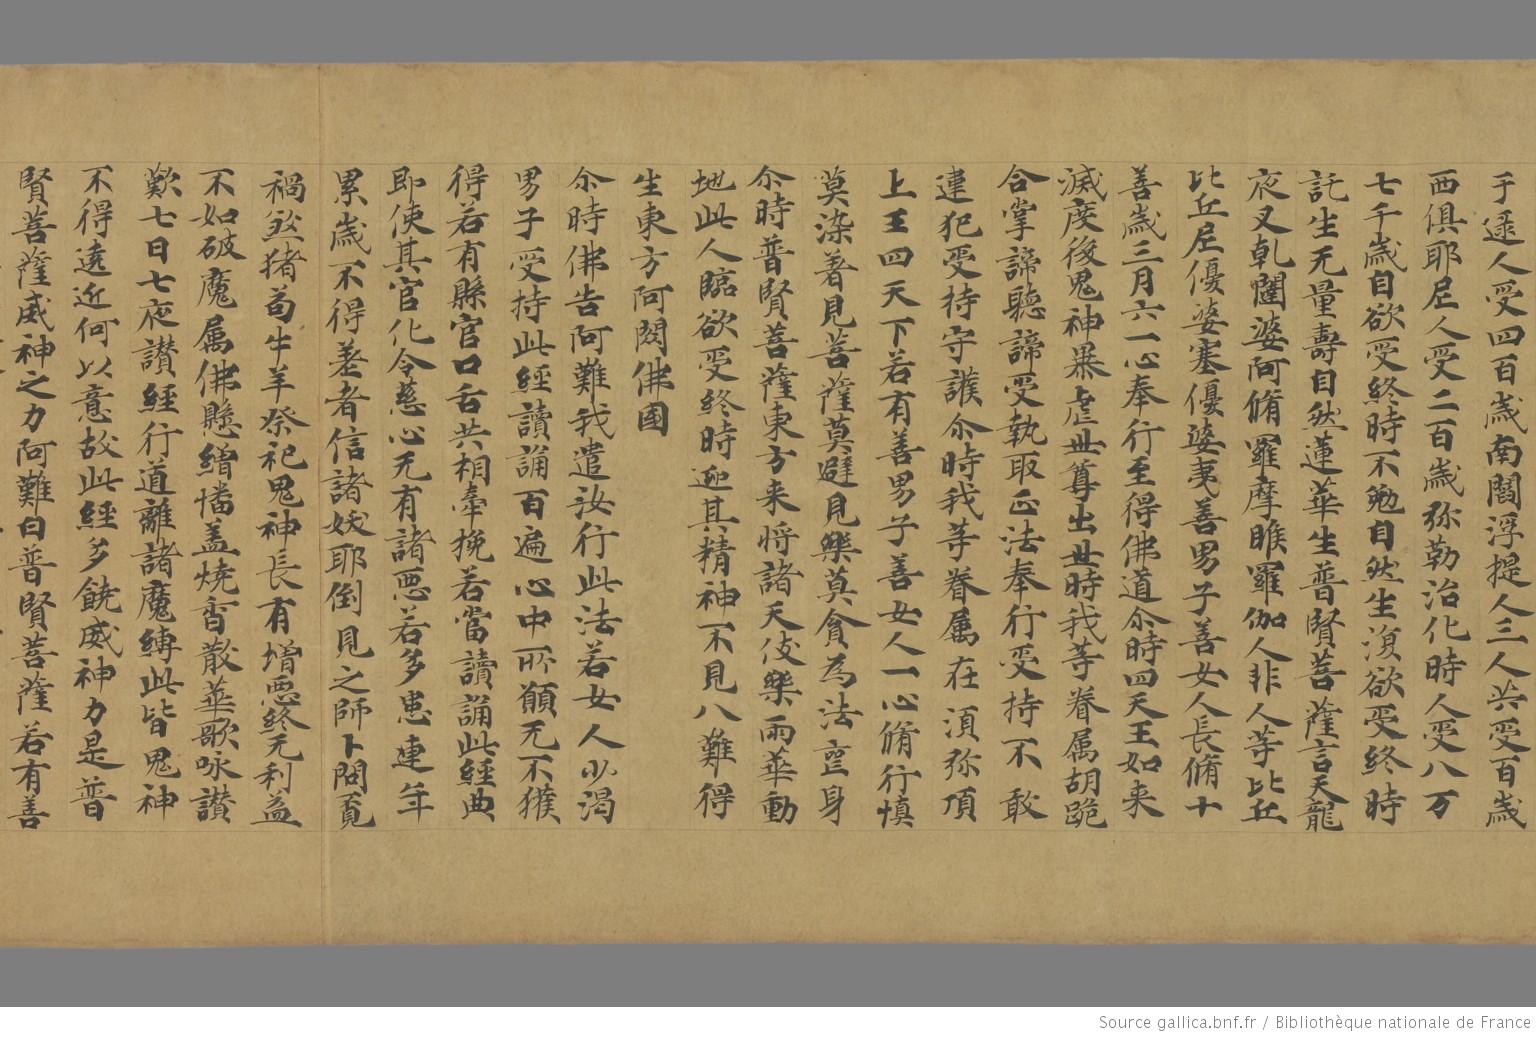 于逯人受四百歳南閻浮提人三人共受百歳
西俱耶尼人受二百歳弥勒治化時人受八万
七千歳自欲受終時不勉自然生復欲受終時
託生无量壽自然蓮華生普賢菩薩言天龍
夜叉乹闥婆阿脩羅摩睺羅伽人非人等比丘
比丘尼優婆塞優婆夷善男子善女人長脩十
善歳三月六一心奉行至得佛道尒時四天王如来
滅度後鬼神暴虐世尊出世時我等眷属胡跪
合掌諦聽諦受執取正法奉行受持不敢
違犯受持守護尒時我等眷属在湏弥頂
上王四天下若有善男子善女人一心脩行慎
莫染著見菩薩莫避見樂莫貪為法忘身
尒時普賢菩薩東方来将諸天伎樂雨華動
地此人臨欲受終時迎其精神不見八難得
生東方阿閦佛国
尒時佛告阿難我遣汝行此法若女人必渴
男子受持此經讀誦百遍心中所願无不獲
得若有縣官口舌共相牽挽若當讀誦此經典
即使其官化令慈心无有諸惡若多患連年
累歳不得差者信諸妖耶倒見之師卜問覓
禍煞猪苟牛羊祭祀鬼神長有增惡終无利益
不如破魔属佛懸繒幡蓋燒香散華歌咏讃
歎七日七夜讃經行道離諸魔縛此皆鬼神
不得遶近何以意故此經多饒威神力是普
賢菩薩威神之力阿難白普賢菩薩若有善
Source gallica.bnf.fr / Bibliothèque nationale de France